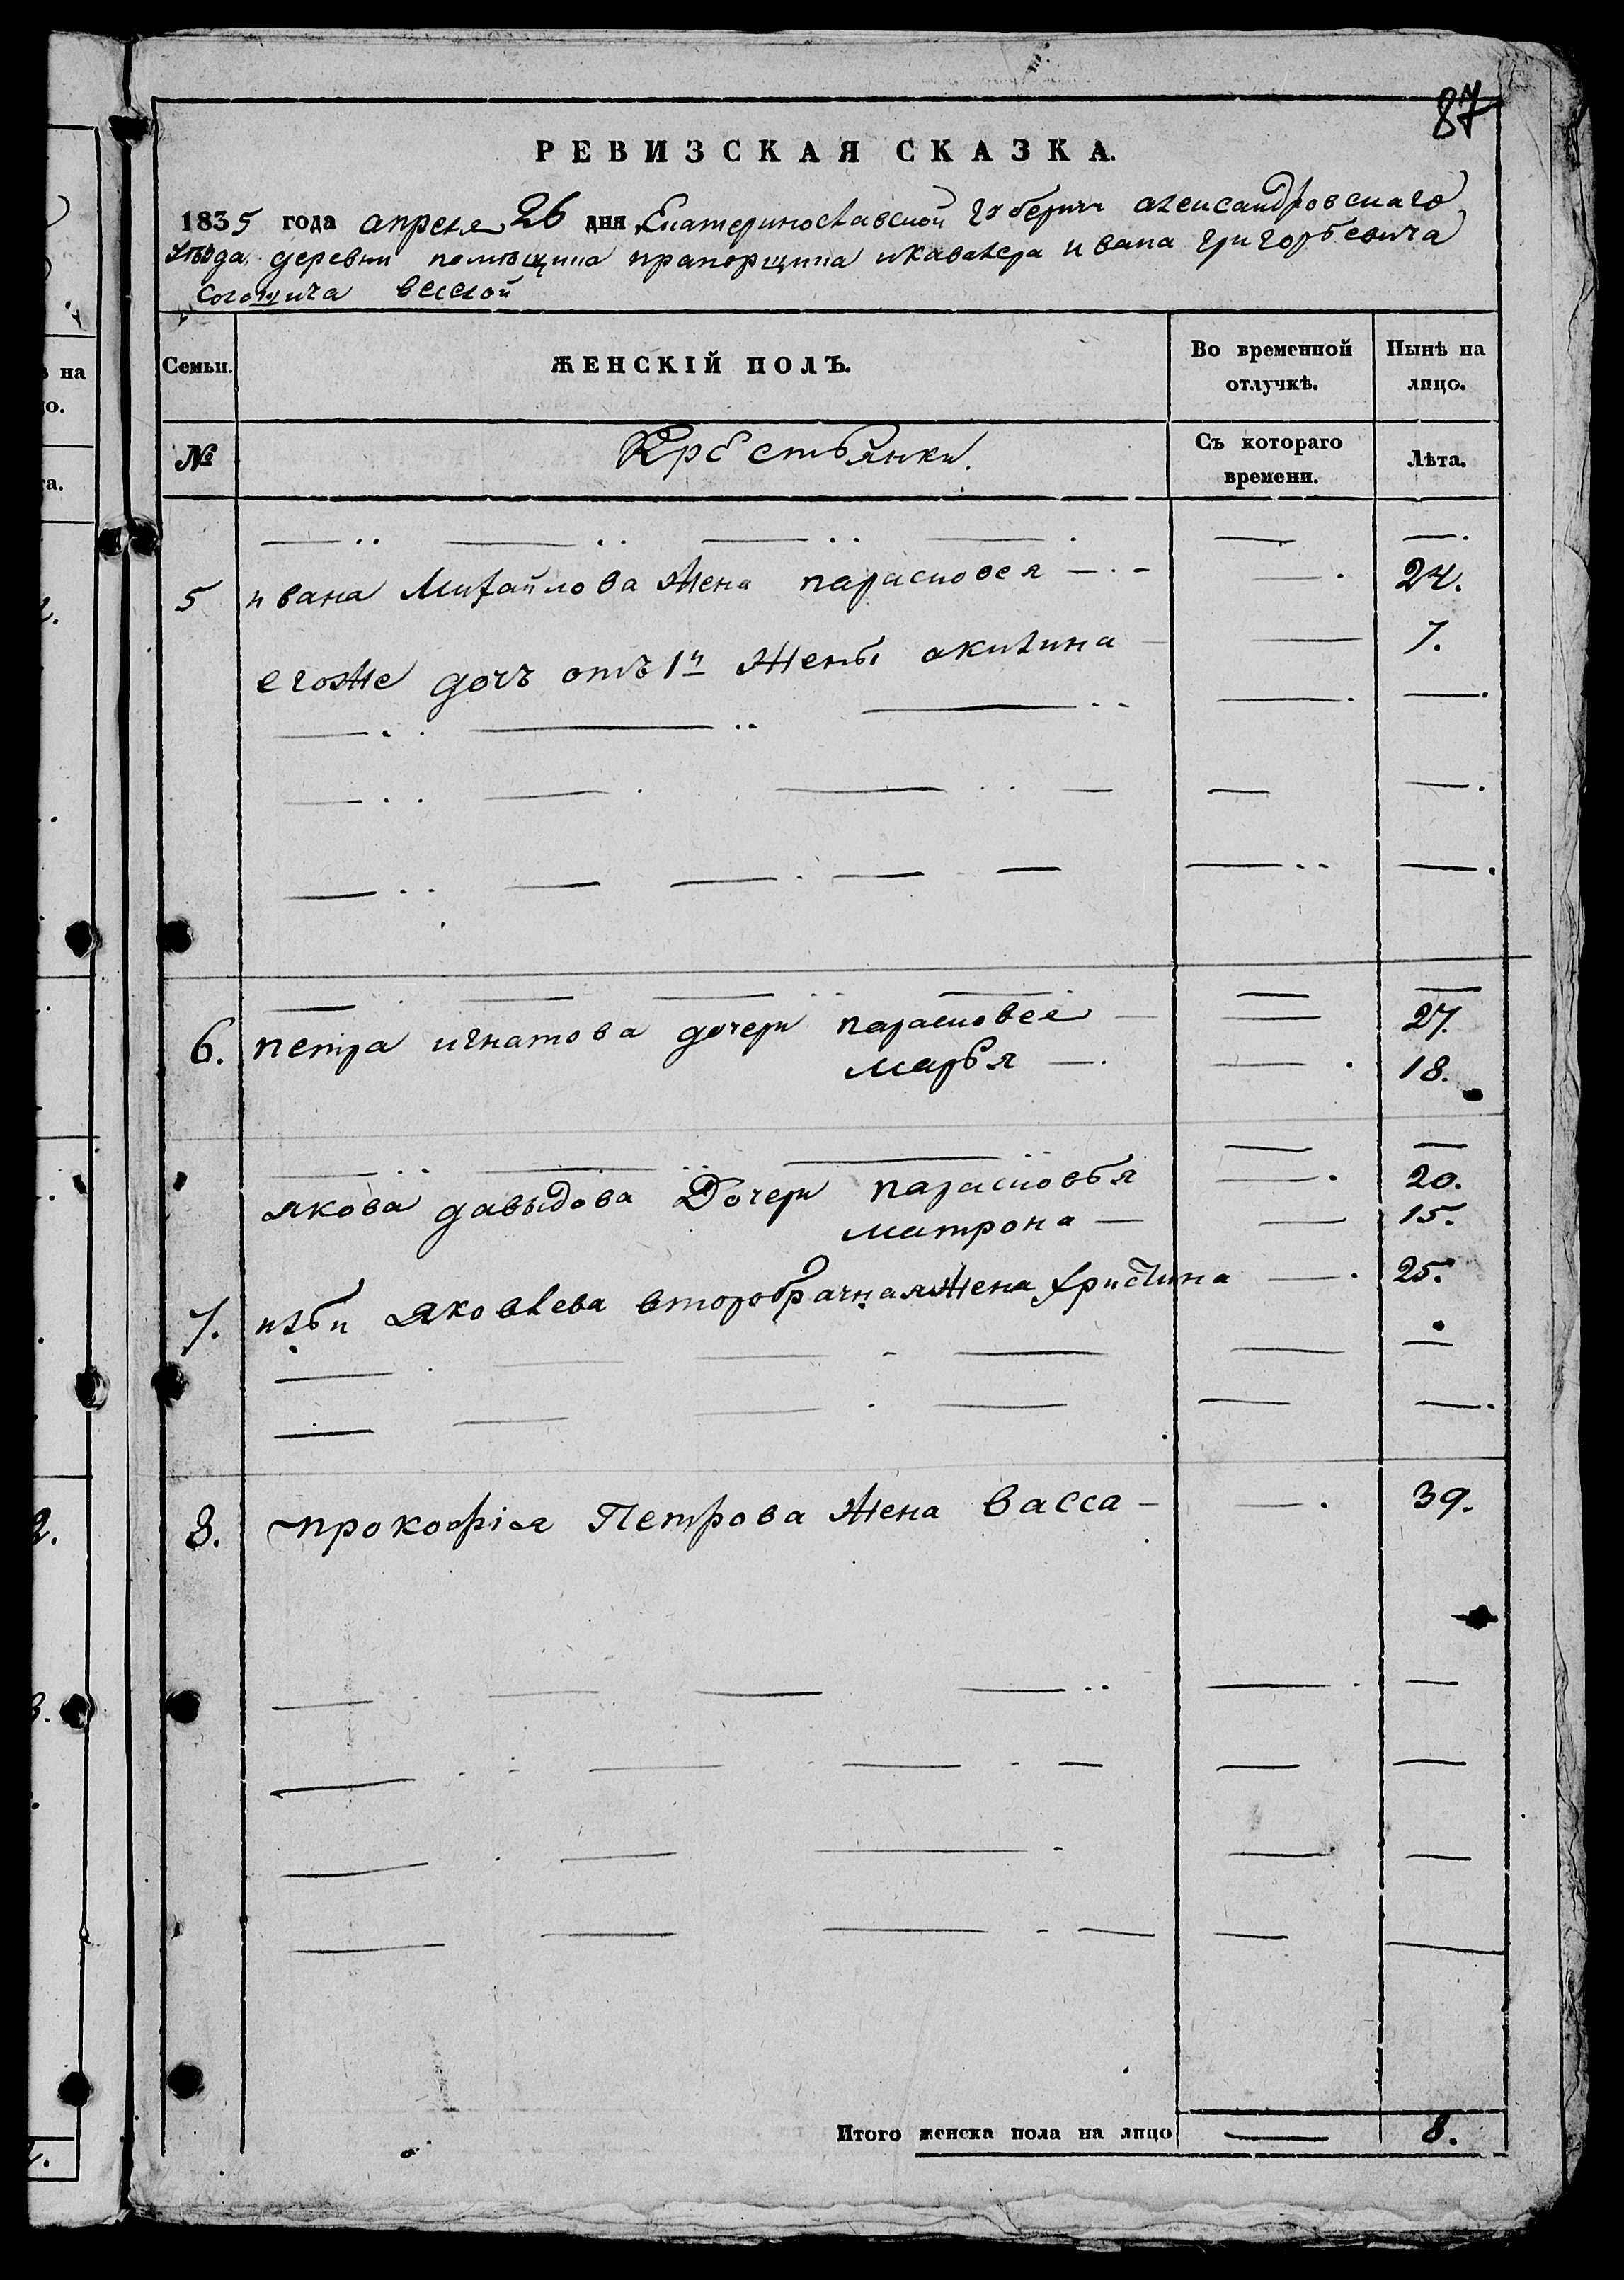 87
РЕВИЗСКАЯ СКАЗКА.
1835 года апреля 26 дня Екатеринославской губернии александровскаго
уѣзда деревни помѣщика прапорщика икавалера ивана григорьевича
веселой
Семьи. ЖЕНСКІЙ ПОЛЪ. Во временной отлучкѣ. Нынѣ на лицо.
№ Крестьянки. Съ котораго времени. Лѣта.
5 ивана Михайлова Жена парасковея 24.
егоже дочъ отъ 1й Жены акилина 7.
6. петра игнатова дочери парасковея 27.
марья 18.
якова давыдова Дочери парасковья 20.
матрона 15.
7. ильи Яковлева второбрачная Жена христина 25.
8. прокофія Петрова Жена васса 39.
Итого женска пола на лицо 8.